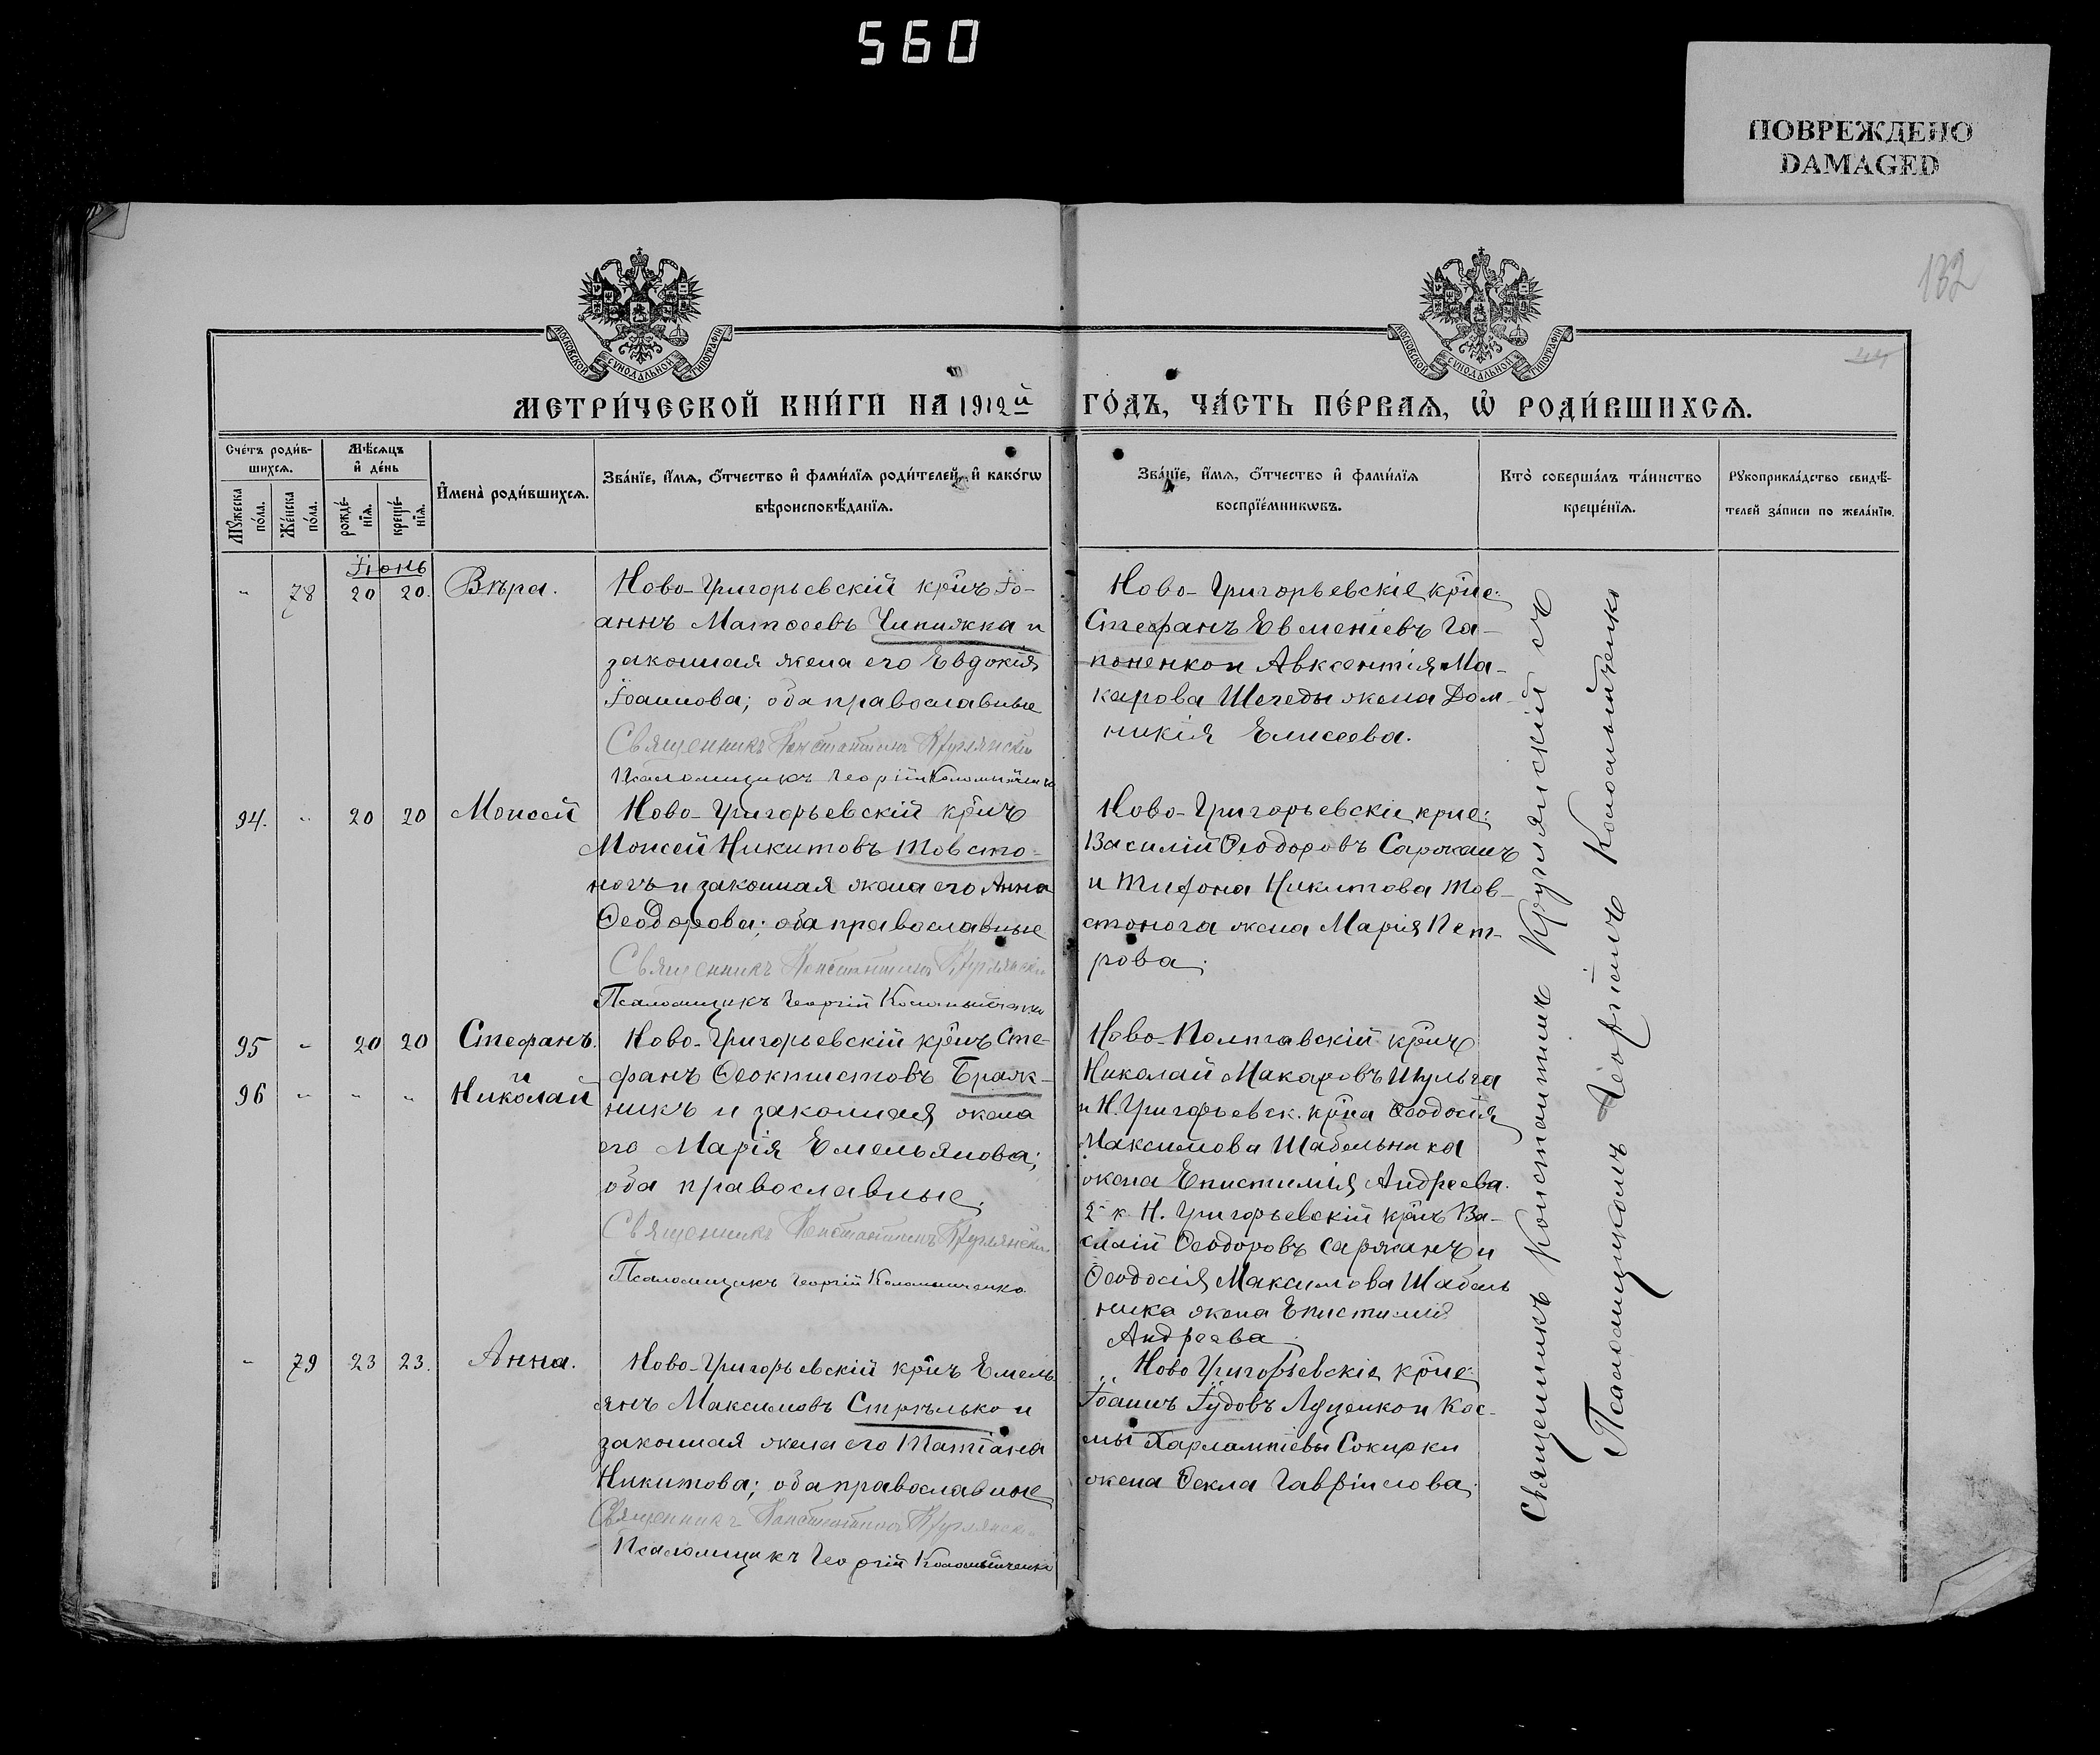 560
ПОВРЕЖДЕНО
DAMAGED
132
МОСКОВСКОЙ СѴНОДАЛЬНОЙ ТИПОГРАФІИ
МОСКОВСКОЙ СѴНОДАЛЬНОЙ ТИПОГРАФІИ
МЕТРИ́ЧЕСКОЙ КНИ́ГИ НА 1912й ГО́ДЪ, ЧА́СТЬ ПЕ́РВАЯ, Ѡ РОДИ́ВШИХСЯ.
Сче́тъ роди́в-
шихся.
Мѣ́сяцъ
и де́нь
Му́жеска
по́ла.
Же́нска
по́ла.
рожде́-
нїя.
креще́-
нїя.
Имена̀ роди́вшихся.
Зва́нїе, и́мя, о́тчество и фами́лїя роди́телей, и како́гѡ
вѣроисповѣ́данїя.
Зва́нїе, и́мя, о́тчество и фами́лїя
воспрїе́мникѡвъ.
Кто̀ соверша́лъ та́инство
креще́нїя.
Рукоприкла́дство свидѣ́-
телей за́писи по жела́нїю.
Іюнь
" 78 20 20. Вѣра.
Ново-Григорьевскій кр̃нъ Іо-
аннъ Матѳеевъ Чипижка и
законная жена его Евдокія
Іоаннова; оба православные
Священникъ Константинъ Круглянскій
Псаломщикъ Георгій Коломыйченко
Ново-Григорьевскіе кр̃не:
Стефанъ Евменіевъ Га-
поненко и Авксентія Ма-
карова Шегеды жена Дом-
никія Елисеева.
94. " 20 20 Моисей
Ново-Григорьевскій кр̃нъ
Моисей Никитовъ Товсто-
ногъ и законная жена его Анна
Ѳеодорова; оба православные
Священникъ Константинъ Круглянскій
Псаломщикъ Георгій Коломыйченко
Ново-Григорьевскіе крне:
Василій Ѳеодоровъ Саржанъ
и Тифона Никитова Тов-
стонога жена Марія Пет-
рова;
95 " 20 20 Стефанъ.
и
96 " " " Николай
Ново-Григорьевскій кр̃нъ Сте-
фанъ Ѳеоктистовъ Браж-
никъ и законная жена
его Марія Емельянова;
оба православные.
Священникъ Константинъ Круглянскій
Псаломщикъ Георгій Коломыйченко
Ново-Полтавскій кр̃нъ
Николай Макаровъ Шульга
и Н. Григорьевск. кр̃на Ѳеодосія
Максимова Шабельника
жена Епистимія Андреева.
2-к Н. Григорьевскій кр̃нъ Ва-
силій Ѳеодоровъ Саржанъ и
Ѳеодосія Максимова Шабель
ника жена Епистимія
Андреева.
" 79 23 23. Анна.
Ново-Григорьевскій кр̃нъ Емель
янъ Максимовъ Стрѣлько и
законная жена его Татіана
Никитова; оба православные
Священникъ Константинъ Круглянскій
Псаломщикъ Георгій Коломыйченко
Ново Григорьевскіе кр̃не:
Іоаннъ Іудовъ Луценко и Кос-
мы Харлампіевы Сокирки
жена Ѳекла Гавріилова;
Священникъ Константинъ Круглянскій съ
Псаломщикомъ Георгіемъ Коломыйченко